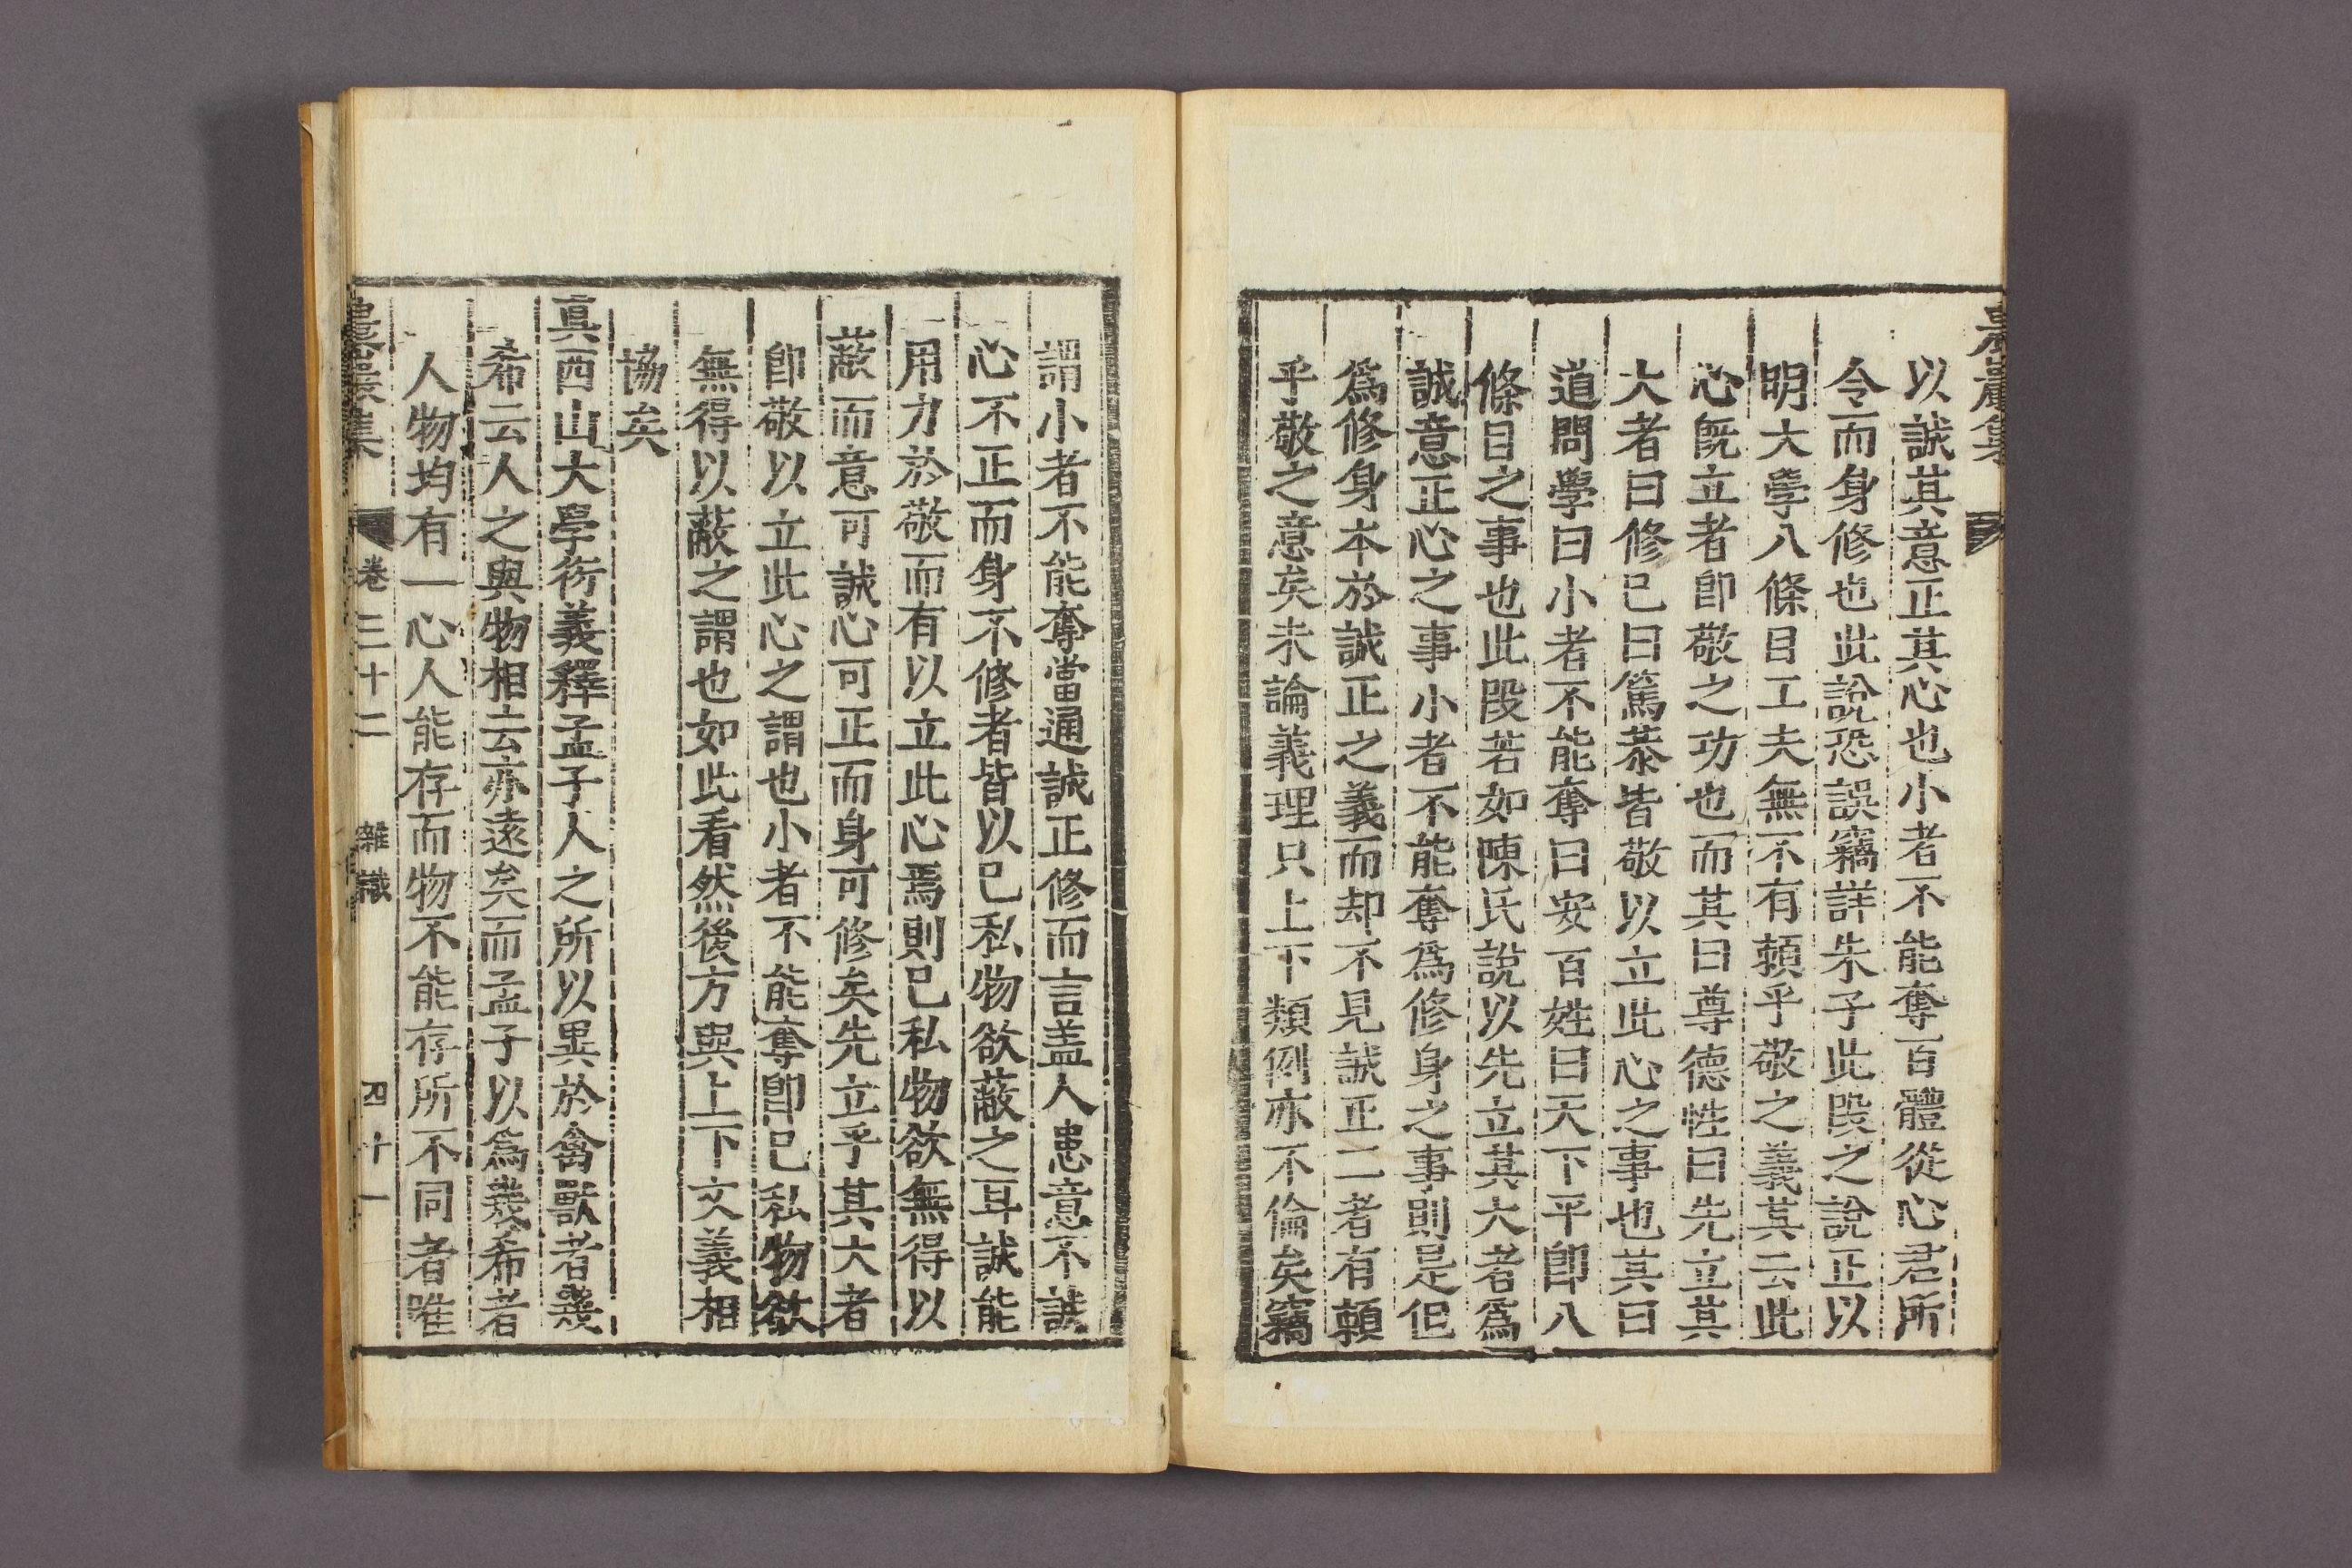 農巖集
以誠其意正其心也小者不能奪百體從心君所
令而身修也此說恐誤竊詳朱子此段之說正以
明大學八條目工夫無不有賴乎敬之義其云此
心旣立者卽敬之功也而其曰尊德性曰先立其
大者曰修己曰篤恭皆敬以立此心之事也其曰
道問學曰小者不能奪曰安百姓曰天下平卽八
條目之事也此段若如陳氏說以先立其大者爲
誠意正心之事小者不能奪爲修身之事則是但
爲修身本於誠正之義而却不見誠正二者有賴
乎敬之意矣未論義理只上下類例亦不倫矣竊
謂小者不能奪當通誠正修而言盖人患意不誠
心不正而身不修者皆以己私物欲蔽之耳誠能
用力於敬而有以立此心焉則己私物欲無得以
蔽而意可誠心可正而身可修矣先立乎其大者
卽敬以立此心之謂也小者不能奪卽己私物欲
無得以蔽之謂也如此看然後方與上下文義相
協矣
眞西山大學衍義釋孟子人之所以異於禽獸者幾
希云人之與物相去亦遠矣而孟子以爲幾希者
人物均有一心人能存而物不能存所不同者唯
農巖集 卷三十二 雜識 四十一